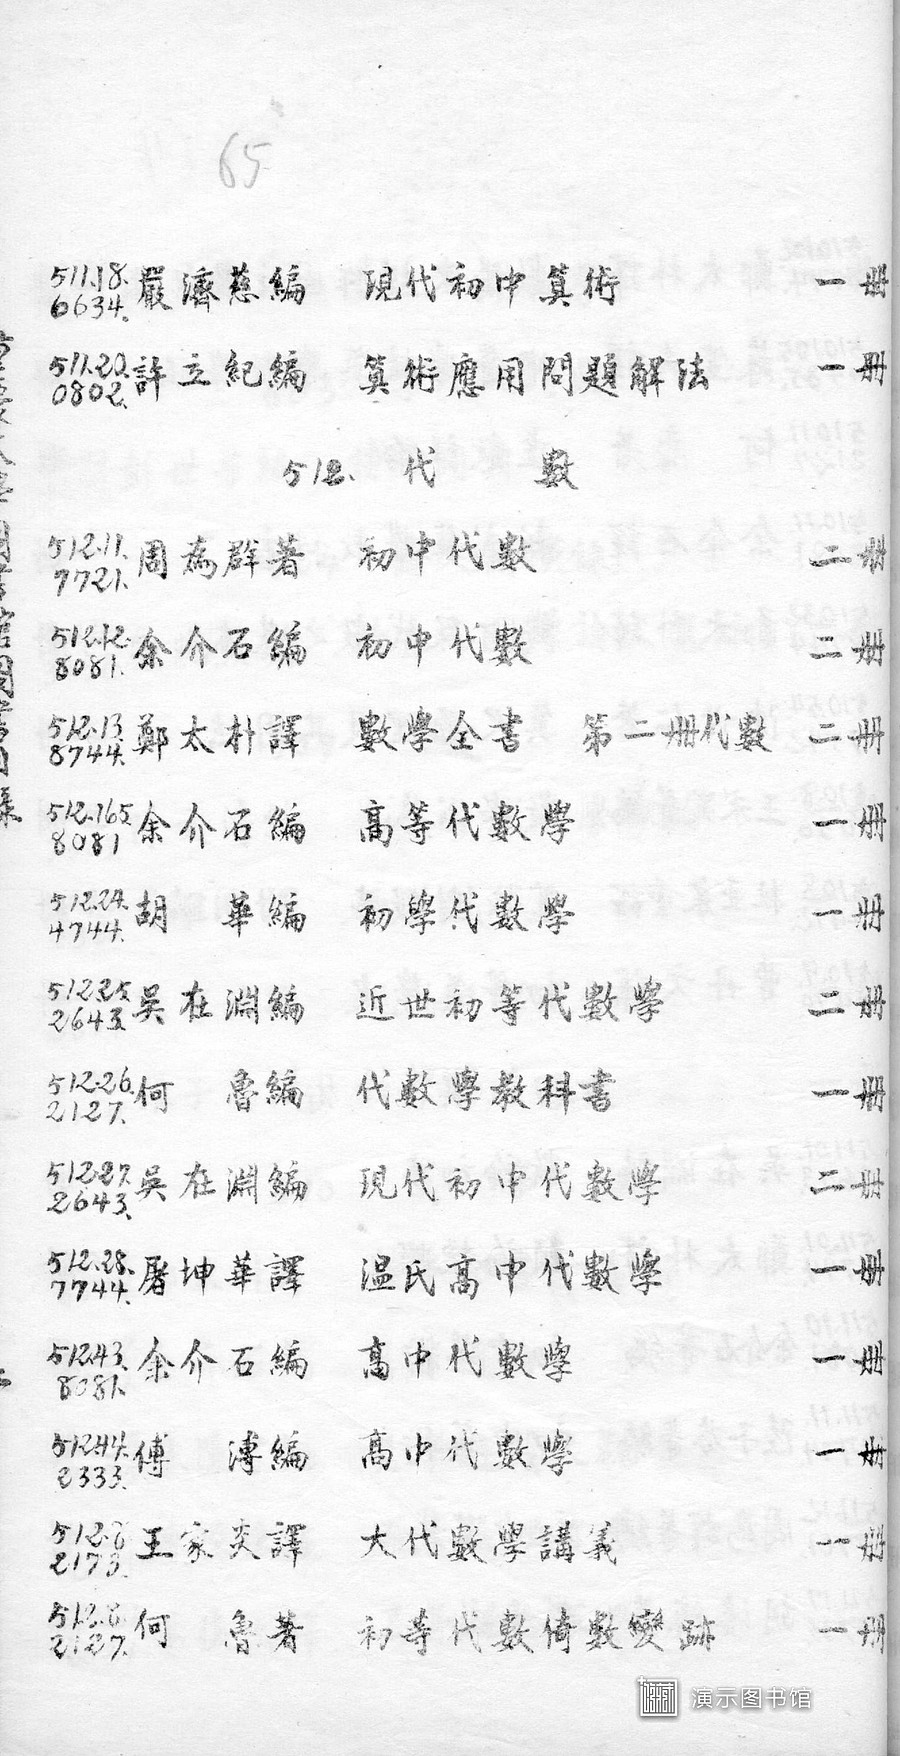 65
511.18. 嚴濟慈編 現代初中算術 一册
6634.
511.20. 許立紀編 算術應用問題解法 一册
0802.
512. 代數
512.11. 周為群著 初中代數 二册
7721.
512.12. 余介石編 初中代數 二册
8081.
512.13. 鄭太朴譯 數學全書 第二册代數 二册
8744.
512.165. 余介石編 高等代數學 一册
8081
512.24. 胡華編 初學代數學 一册
4744.
512.25. 吳在淵編 近世初等代數學 二册
2643.
512.26. 何魯編 代數學教科書 一册
2127.
512.27. 吳在淵編 現代初中代數學 二册
2643.
512.28. 屠坤華譯 温氏高中代數學 一册
7744.
512.43. 余介石編 高中代數學 一册
8081.
512.44. 傅溥編 高中代數學 一册
2333.
512.8 王家炎譯 大代數學講義 一册
2173.
512.8. 何魯著 初等代數倚數變跡 一册
2127.
演示图书馆